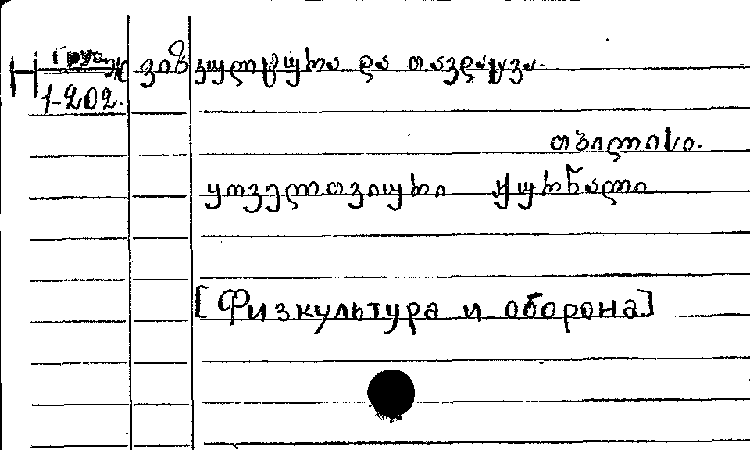 Груз ж ფიზკულტურა და თავდაცვა.
1-202.
თბილისი.
ყოველთვიური ჟურნალი
[Физкультура и оборона]